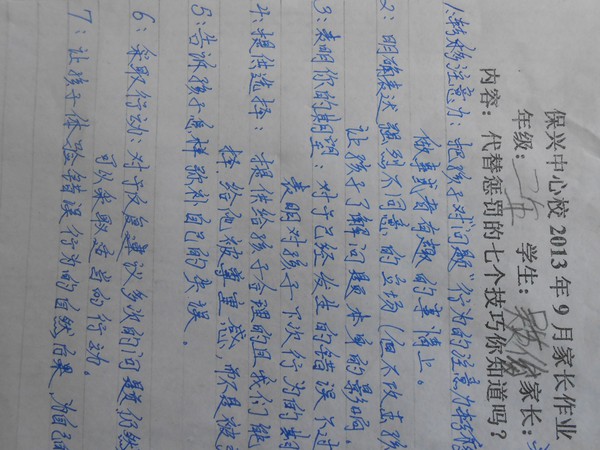 保兴中心校 2013 年 9 月家长作业
年级：二年 学生： 家长：
内容：代替惩罚的七个技巧你知道吗？
1:转移注意力：把孩子对"问题"行为的注意力转移
做事或者有趣的事情上。
2：明确表达强烈不同意的立场（但不攻击孩
让孩子了解问题本身的影响。
3：表明你的期望：对于已经发生的错误不过
表明对孩子下次行为的期
4：提供选择：提供给孩子合理的且我们能
择，给他被尊重感，而不是被
5：告诉孩子怎样弥补自己的失误。
6：采取行动：对于反复建议多次的问题仍然
可以采取适当的行动。
7：让孩子体验错误行为的自然后果，为自己